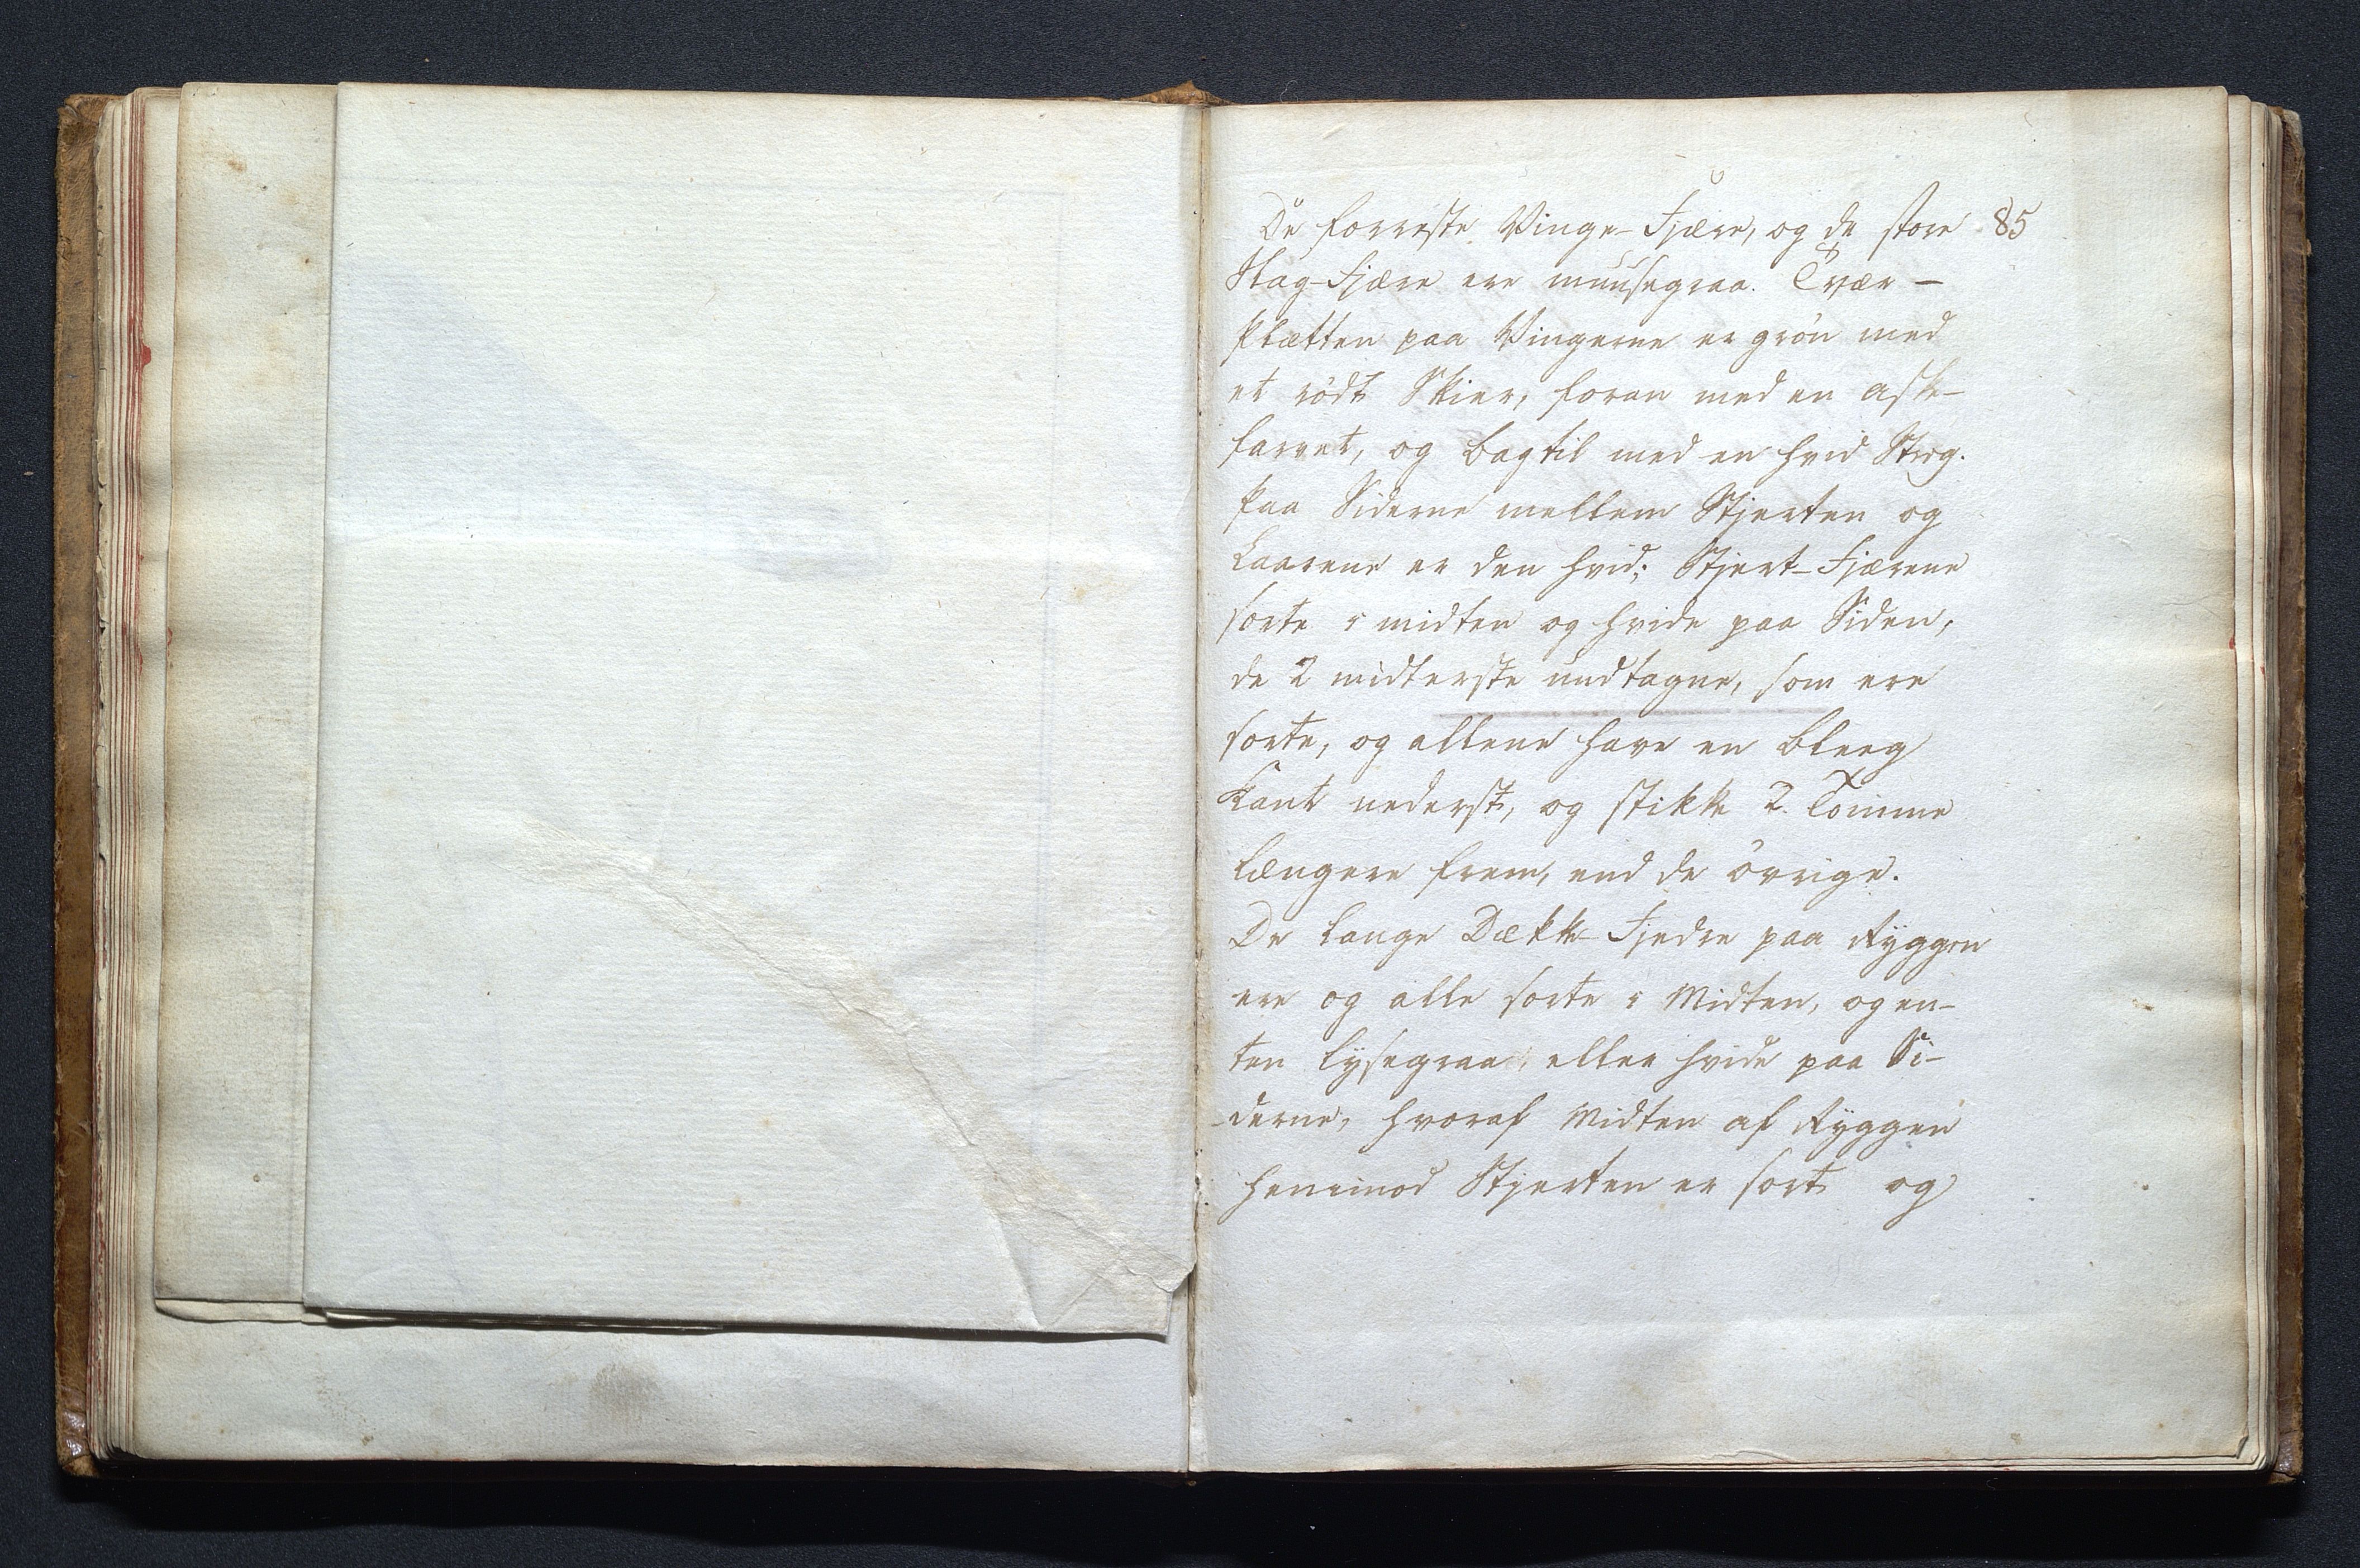 De forreste Vinge-Fjære, og de store 85
Slag-Fjære ere muusegraa. Tvær-
Pletten paa Vingerne er grøn med
et rødt Skier, foran med en aske-
farvet, og bagtil med en hvid Streg.
Paa Siderne mellem Stjerten og
Laarene er den hvid; Stjert-Fjærene
sorte i midten og hvide paa Siden,
de 2 midterste undtagne, som ere
sorte, og allene have en bleeg
Kant nederst, og stikke 2 Tomme
længere frem, end de øvrige.
De lange Dække-Fjedre paa Ryggen
ere og alle sorte i Midten, og en-
ten lysegraa, eller hvide paa Si-
derne, hvoraf Midten af Ryggen
henimod Stjerten er sort og